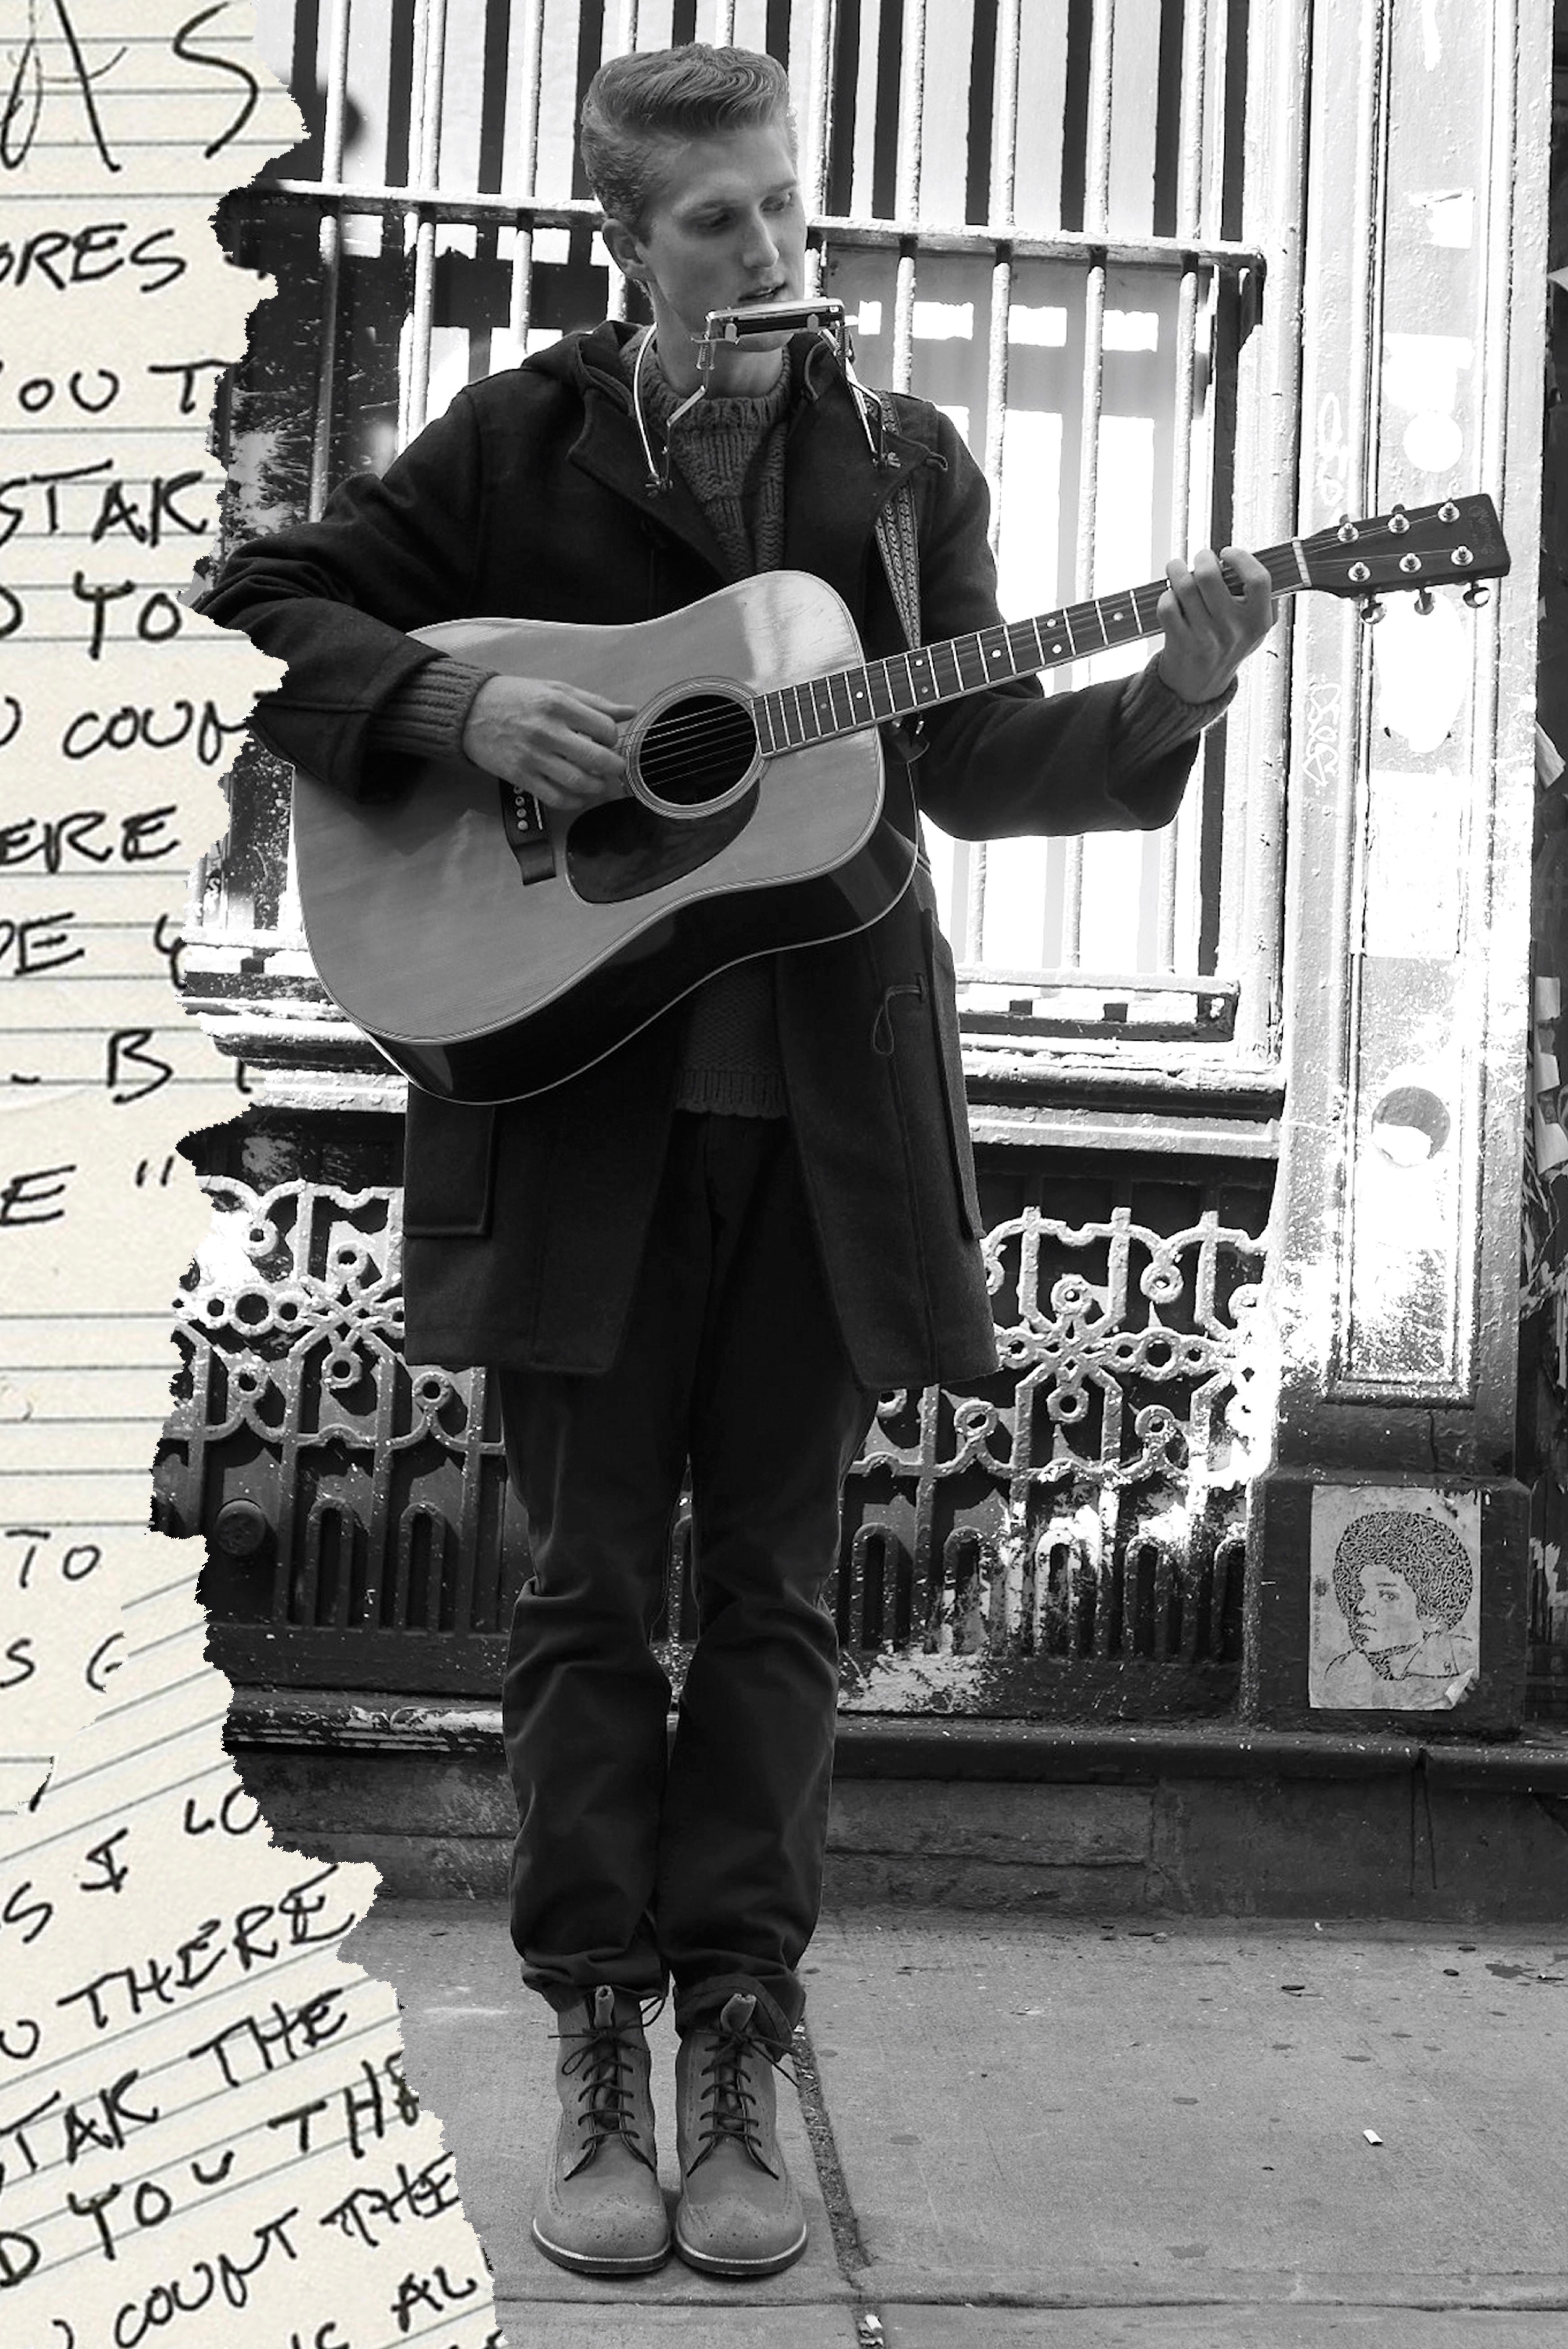 AS
ORES
YOU T
STAK
D YO
U COUN
ERE
DE Y
- B
E "
TO
S
S I LO
U THERE
STAK THE
D YOU THE
U COUNT THE
AL